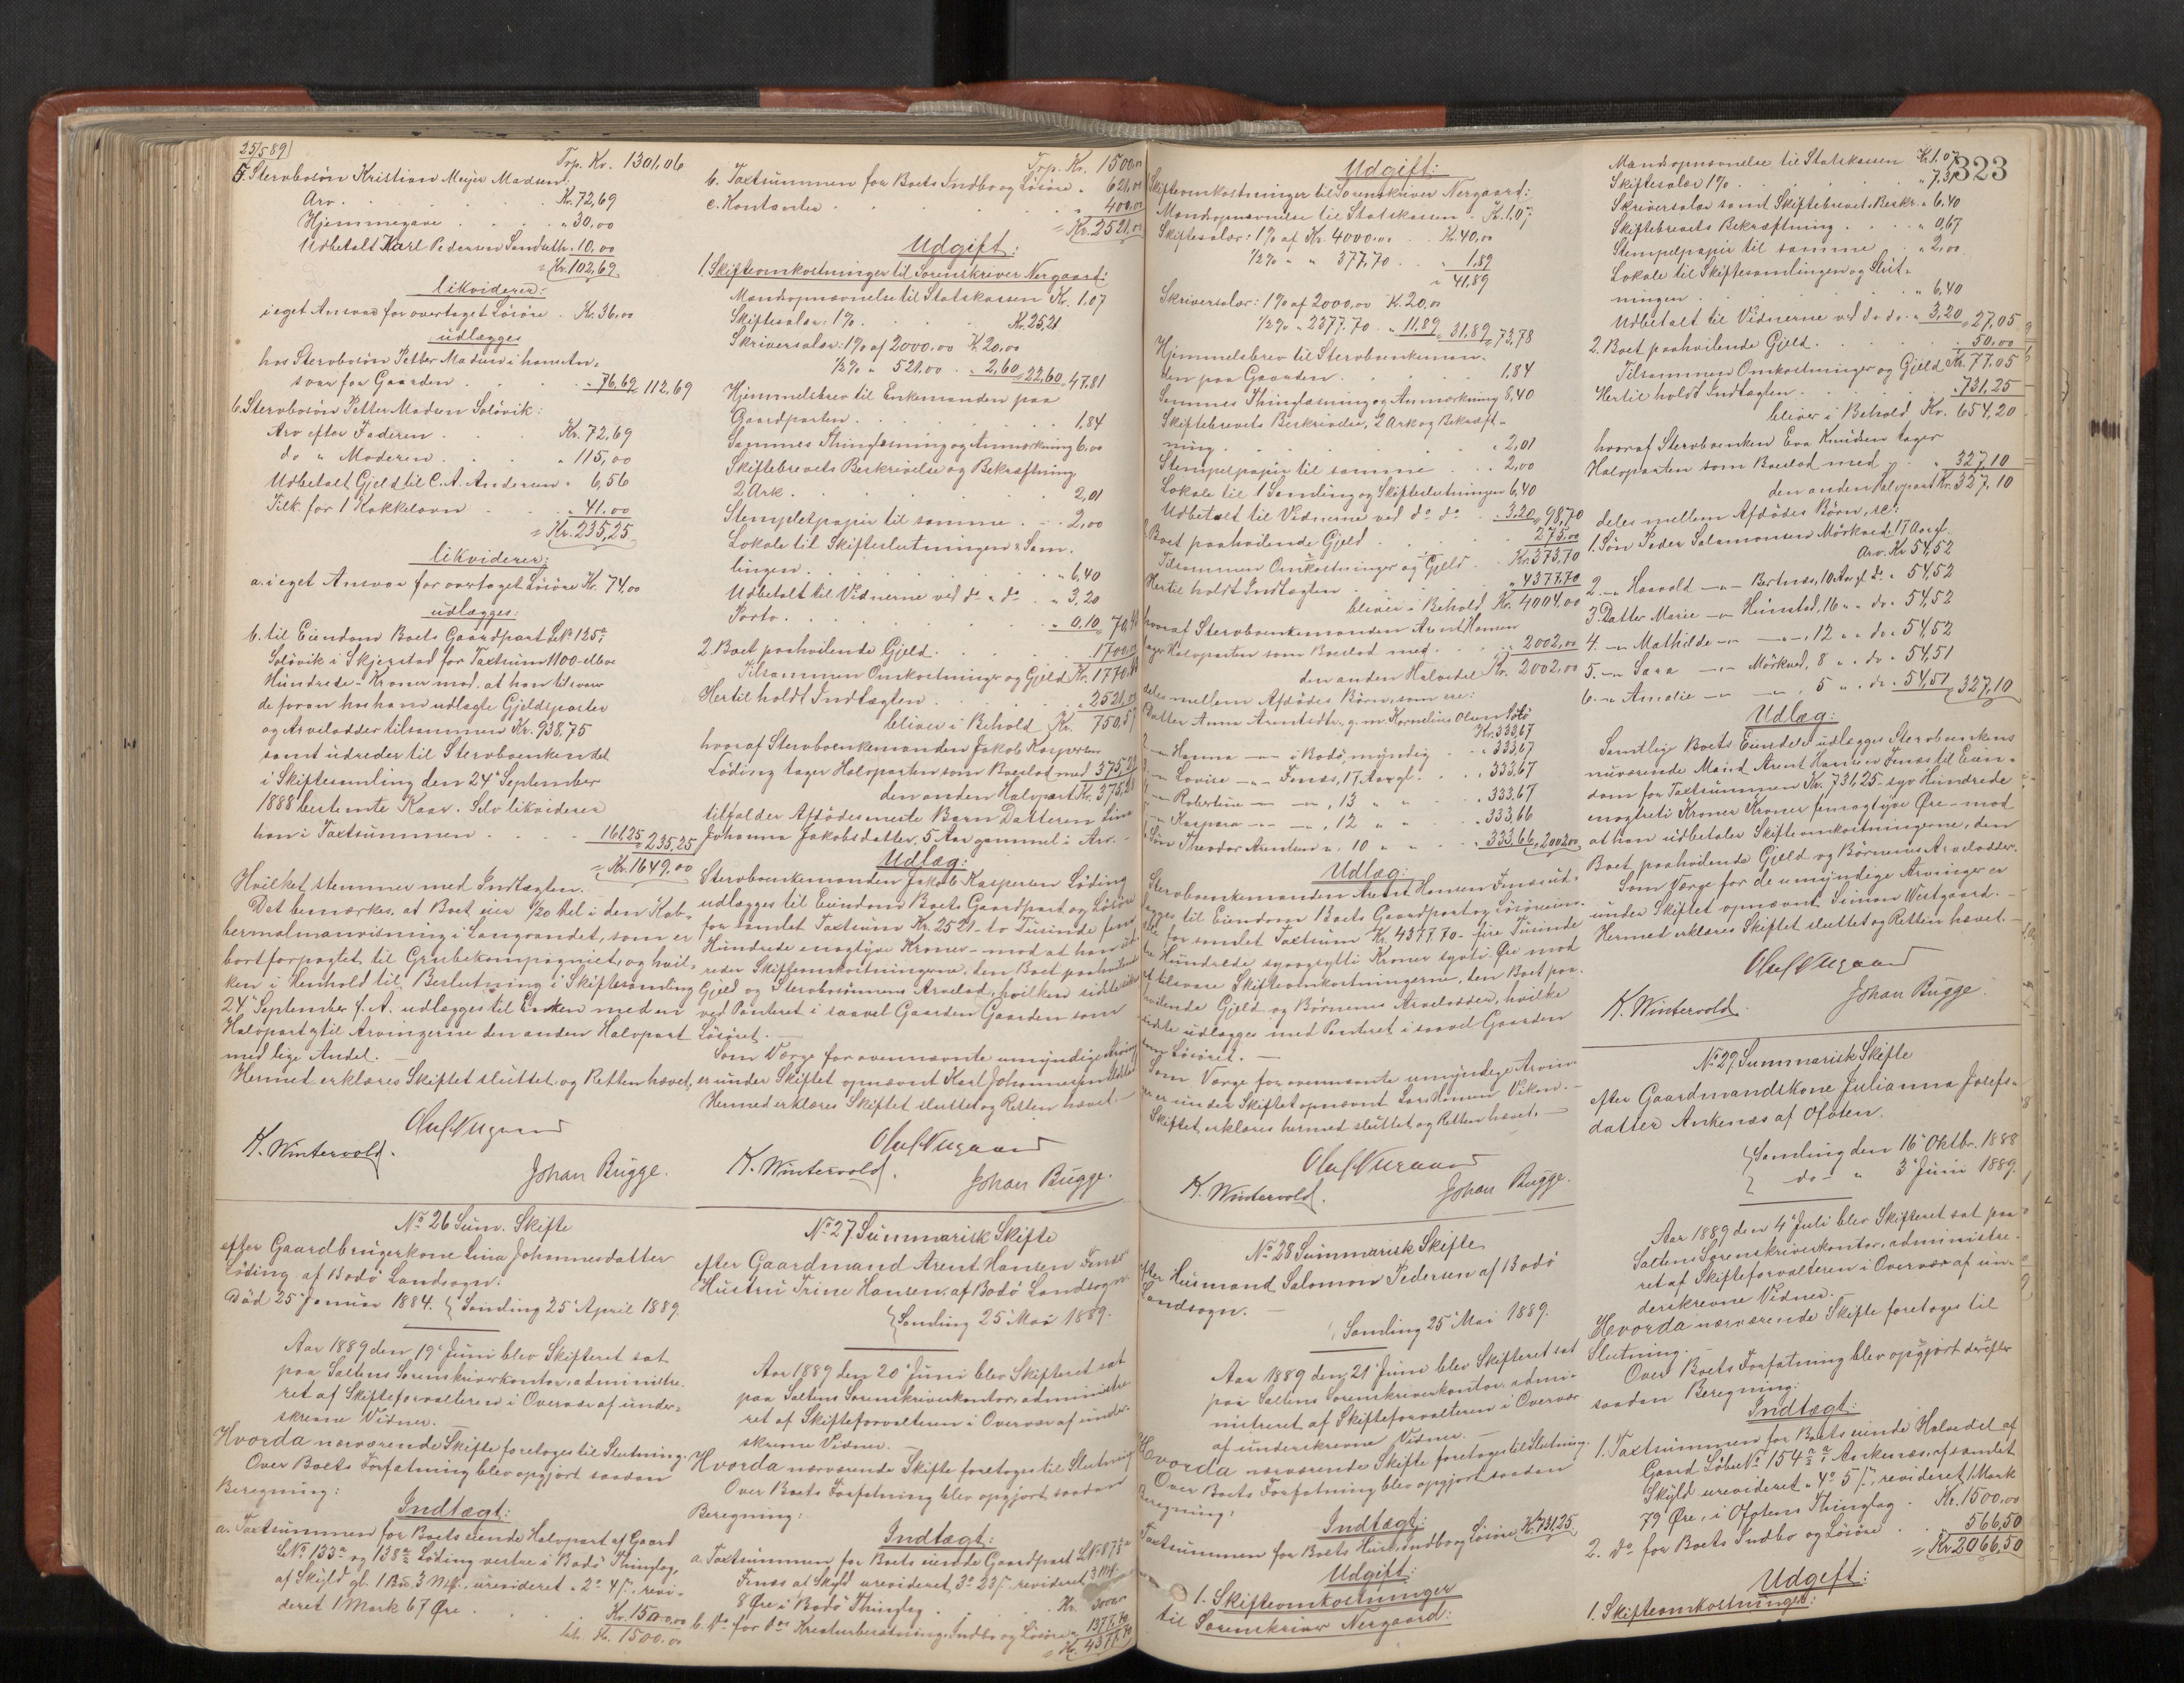 25/589
Trp. Kr. 1301,06
5. Stervbosøn Kristian Meyer Madsen:
Arv . . . Kr. 72,69
Hjemmegave . . . " 30,00
Udbetalt Karl Pedersen " 10,00
= Kr. 102,69
likviderer:
i eget Ansvar for overtaget Løsøre . Kr. 36,00
udlægges
hos Stervbosøn Petter Madsen i hans An-
svar for Gaarden . . . " 76,69 = 112,69
6. Stervbosøn Petter Madsen Soløvik:
Arv efter Faderen . . Kr. 72,69
do " Moderen . . " 115,00
Udbetalt Gjeld til C. A. Andersen " 6,56
Tilk. for 1 Kakkelovn . . " 41.00
= Kr. 235,25
likviderer:
a. i eget Ansvar for overtaget Løsøre Kr. 74,00
udlægges:
b. til Eiendom Boets Gaardpart LNo 125a
Soløvik i Skjerstad for Taxtsum 1100 - elleve
Hundrede - Kroner mod, at han tilsvarer
de foran hos ham udlagte Gjeldsposter
og Arvelodder tilsammen Kr. 938,75
samt udreder til Stervboenken det
i Skiftesamling den 24' September
1888 bestemte Kaar. Selv likviderer
han i Taxtsummen . . 161,25 = 235,25
= Kr. 1649.00
Hvilket stemmer med Indtægten.
Det bemærkes, at Boet eier 1/20 Del i den Kob-
bermalmanvisning i Langvandet, som er
bortforpagtet til Grubekompagniet, og hvil-
ken i Henhold til Beslutning i Skiftesamling
24' September f. A. udlægges til Enken med en
Halvpart og til Arvingerne den anden Halvpart
med lige Andel. —
Hermed erklæres Skiftet sluttet og Retten hævet.
Oluf Nergaard
K. Wintervold.
Johan Bugge.
No 26 Sum. Skifte
efter Gaardbrugerkone Lina Johannesdatter
Løding af Bodø Landsogn.
Død 25' Januar 1884. { Samling 25' April 1889.
Aar 1889 den 19' Juni blev Skifteret sat
paa Saltens Sorenskriverkontor, administre-
ret af Skifteforvalteren i Overvær af under-
skrevne Vidner. —
Hvorda nærværende Skifte foretoges til Slutning.
Over Boets Forfatning blev opgjort saadan
Beregning:
Indtægt:
a. Taxtsummen for Boets eiende Halvpart af Gaard
LNo 133a og 138a Løding vestre i Bodø Thinglag,
af Skyld gl. 1 Bu. 3 Mk., urevideret " 2 " 4 s, revi-
deret 1 Mark 67 Øre . . . Kr. 1500,00
Lat. Kr. 1500.00
Trp. Kr. 1500,00
b. Taxtsummen for Boets Indbo og Løsøre " 621,00
c. Kontanter . . . " 400,00
= Kr. 2521,00
Udgift:
1. Skifteomkostninger til Sorenskriver Nergaard:
Mandsopnævnelse til Statskassen Kr. 1,07
Skiftesalær: 1% . . . Kr. 25,21
Skriversalær: 1% af 2000.00 K. 20,00
1/2% " 521,00 . " 2,60 = 22,60 = 47,81
Hjemmelsbrev til Enkemanden paa
Gaardparten . . . 1,84
Sammes Thinglæsning og Anmærkning 6,00
Skiftebrevets Beskrivelse og Bekræftning
2 Ark . . . 2,01
Stempletpapir til samme . . 2,00
Lokale til Skifteslutningen & Sam-
lingen . . . " 6,40
Udbetalt til Vidnerne ved do " do . " 3,20
Porto . . . " 0,10
2. Boet paahvilende Gjeld . . . 1700,00
Tilsammen Omkostninger og Gjeld Kr. 1770.43
Hertil holdt Indtægten . . . " 2521,00
bliver i Behold Kr. 750,57
hvoraf Stervboenkemanden Jakob Kaspersen
Løding tager Halvparten som Boeslod med 375,29
den anden Halvpart Kr. 375,28
tilfalder Afdødes eneste Barn Datteren Lina
Johanna Jakobsdatter, 5 Aar gammel i Arv. —
Udlæg:
Stervboenkemanden Jakob Kaspersen Løding
udlægges til Eiendom Boets Gaardpart og Løsøre
for samlet Taxtsum Kr. 2521 - to Tusinde fem
Hundrede enogtyve Kroner - mod at han ud-
reder Skifteomkostningerne, den Boet paahvilende
Gjeld og Stervbosønnens Arvelod, hvilken sidste sikres
ved Panteret i saavel Gaarden Gaarden som
Løsøret. —
Som Værge for ovennævnte umyndige Arving
er under Skiftet opnævnt Karl Johannessen
Hermed erklæres Skiftet sluttet og Retten hævet. —
Oluf Nergaard
K. Wintervold.
Johan Bugge.
No 27 Summarisk Skifte
efter Gaardmand Arent Hansen Fenes'
Hustru Trine Hansen af Bodø Landsogn.
{ Samling 25' Mai 1889.
Aar 1889 den 20' Juni blev Skifteret sat
paa Saltens Sorenskriverkontor, administre-
ret af Skifteforvalteren i Overvær af under-
skrevne Vidner. —
Hvorda nærværende Skifte foretoges til Slutning.
Over Boets Forfatning blev opgjort saadan
Beregning:
Indtægt:
a. Taxtsummen for Boets eiende Gaardpart LNo 87
Fenæs af Skyld urevideret 3 " 23 s, revideret 3 Mk.
8 Øre i Bodø Thinglag . . Kr. 3000,00
b. do for do Kreaturbesætning, Indbo og Løsøre " 1377,70
= Kr. 4377,70
Udgift:
Skifteomkostninger til Sorenskriver Nergaard:
Mandsopnævnelse til Statskassen . K. 1.07
Skiftesalær: 1% af Kr. 4000.00 . . Kr. 40,00
1/2% " " 377,70 . . " 1,89
" 41,89
Skriversalær: 1% af 2000,00 K. 20,00
1/2% " 2377.70 . " 11,89 = 31,89 = 73,78
Hjemmelsbrev til Stervboenkeman-
den paa Gaarden . . . 1,84
Sammes Thinglæsning og Anmærkning 8,40
Skiftebrevets Beskrivelse, 2 Ark og Bekræft-
ning . . . " 2,01
Stempelpapir til samme . . " 2,00
Lokale til 1 Samling og Skifteslutningen 6,40
Udbetalt til Vidnerne ved do do . " 3,20 = 98,70
Boet paahvilende Gjeld . . . 275,00
Tilsammen Omkostninger og Gjeld . Kr. 373,70
Hertil holdt Indtægten . . . " 4377.70
bliver i Behold Kr. 4004,00
hvoraf Stervboenkemanden Arent Hansen
tager Halvparten som Boeslod med . . " 2002,00
den anden Halvdel Kr. 2002,00
deles mellem Afdødes Børn, som ere:
Datter Anna Arntsdtr., g. m. Kornelius Olsen
Kr. 333,67
2 — Hanna — i Bodø myndig . . " 333,67
— Lovise — Fenæs, 17 Aar gl. . " 333,67
— Robertine — , 13 " " . " 333,67
— Kaspara — , 12 " " . " 333,66
Søn Theodor Arentsen " 10 " " . " 333,66 = 2002,00
Udlæg:
Stervboenkemanden Arent Hansen Fenæs ud-
lægges til Eiendom Boets Gaardpart og Løsøreeien-
dele for samlet Taxtsum Kr. 4377.70 - fire Tusinde
tre Hundrede syvogsytti Kroner sytti Øre mod
at tilsvare Skifteomkostningerne, den Boet paa-
hvilende Gjeld og Børnenes Arvelodder, hvilke
sidste udlægges med Panteret i saavel Gaarden
som Løsøret. —
Som Værge for ovennævnte umyndige Arvin-
ger er under Skiftet opnævnt Lars Hansen Viken. —
Skiftet erklæres hermed sluttet og Retten hævet. —
Oluf Nergaard
K. Wintervold.
Johan Bugge.
No 28 Summarisk Skifte
efter Husmand Salomon Pedersen af Bodø
Landsogn. —
{ Samling 25' Mai 1889.
Aar 1889 den 21' Juni blev Skifteret sat
paa Saltens Sorenskriverkontor, admi-
nistreret af Skifteforvalteren i Overvær
af underskrevne Vidner. —
Hvorda nærværende Skifte foretoges til Slutning.
Over Boets Forfatning blev opgjort saadan
Beregning:
Indtægt:
Taxtsummen for Boets Huse, Indbo og Løsøre Kr. 731,25
Udgift:
1. Skifteomkostninger
til Sorenskriver Nergaard:
323
Mandsopnævnelse til Statskassen K. 1.07
Skiftesalær 1% . . . " 7,31
Skriversalær samt Skiftebrevets Beskr. " 6,40
Skiftebrevets Bekræftning . . " 0,67
Stempelpapir til samme . . " 2,00
Lokale til Skiftesamlingen og Slut-
ningen . . . " 6,40
Udbetalt til Vidnerne ved do do . " 3,20 = 27,05
2. Boet paahvilende Gjeld . . . 50,00
Tilsammen Omkostninger og Gjeld Kr. 77,05
Hertil holdt Indtægten . . . " 731,25
bliver i Behold Kr. 654,20
hvoraf Stervboenken Eva Knudsen tager
Halvparten som Boeslod med . . " 327,10
den anden Halvpart Kr. 327,10
deles mellem Afdødes Børn, se:
1. Søn Peder Salamonsen Mørkved, 17 Aar gl.
Arv. Kr. 54,52
2. — Haavold — Bertnes, 10 Aar gl. do " 54,52
3. Datter Marie — Hunstad, 16 " " do " 54,52
4. — Mathilde — — , 12 " " do " 54,52
5. — Sara — Mørkved, 8 " " do " 54,51
6. — Amalie — — , 5 " " do " 54,51 = 327,10
Udlæg:
Samtlige Boets Eiendele udlægges Stervboenkens
nuværende Mand Arent Hansen Fenæs til Eien-
dom for Taxtsummen Kr. 731,25 - syv Hundrede
enogtreti Kroner Kroner femogtyve Øre - mod
at han udbetaler Skifteomkostningerne, den
Boet paahvilende Gjeld og Børnenes Arvelodder.
Som Værge for de umyndige Arvinger er
under Skiftet opnævnt Simon Westgaard. —
Hermed erklæres Skiftet sluttet og Retten hævet. —
Oluf Nergaard
K. Wintervold.
Johan Bugge.
No 29 Summarisk Skifte
efter Gaardmandskone Julianna Josefs-
datter Ankenæs af Ofoten.
{ Samling den 16' Oktbr. 1888
{ do " 3' Juni 1889.
Aar 1889 den 4' Juli blev Skifteret sat paa
Saltens Sorenskriverkontor, administre-
ret af Skifteforvalteren i Overvær af un-
derskrevne Vidner.
Hvorda nærværende Skifte foretoges til
Slutning. —
Over Boets Forfatning blev opgjort derefter
saadan Beregning:
Indtægt:
1. Taxtsummen for Boets eiende Halvdel af
Gaard Løbe No 154 a Ankenæs, af samlet
Skyld urevideret " 4 " 5 s, revideret 1 Mark
79 Øre, i Ofotens Thinglag . Kr. 1500,00
2. do for Boets Indbo og Løsøre . . 566,50
= Kr. 2066,50
Udgift:
1. Skifteomkostninger: